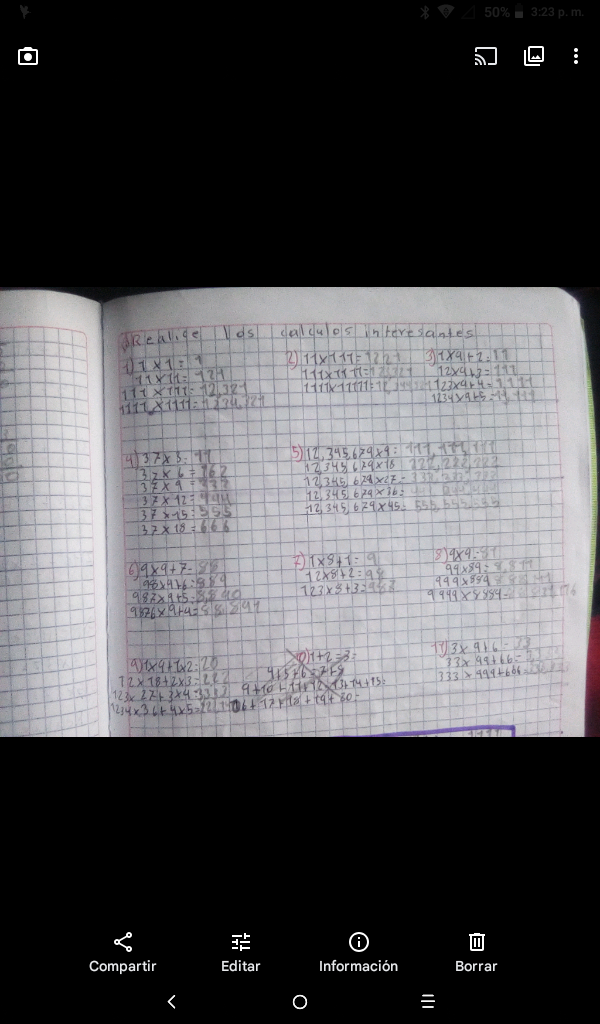 50% 3:23 p. m.
Realice los calculos interesantes
1) 1 x 1 = 1
11 x 11 = 121
111 x 111 = 12,321
1111 x 1111 = 1234,321
2) 11 x 111 = 1221
111 x 1111 =
1111 x 11111 =
3) 1 x 9 + 2 = 11
12 x 9 + 3 = 111
123 x 9 + 4 = 1111
1234 x 9 + 5 = 11,111
4) 37 x 3 =
37 x 6 =
37 x 9 =
37 x 12 = 444
37 x 15 = 555
37 x 18 = 666
5) 12,345,679 x 9 = 111,111,111
12,345,679 x 18 222,222,222
12,345,679 x 27 =
12,345,679 x 36 =
12,345,679 x 45 = 555,555,555
6) 9 x 9 + 7 = 88
98 x 9 + 6 = 889
987 x 9 + 5 = 8,890
9876 x 9 + 4 = 88,891
7) 1 x 8 + 1 = 9
12 x 8 + 2 = 98
123 x 8 + 3 = 987
8) 9 x 9 = 81
99 x 89 =
999 x 889
9999 x 8889 =
9) 1 x 9 + 1 x 2 = 20
12 x 18 + 2 x 3 = 222
123 x 27 + 3 x 4 =
1234 x 36 + 4 x 5 =
1 + 2 = 3
4 + 5 + 6 = 7 + 8
9 + 10 + 11 + 12 13 + 14 + 15 =
16 + 17 + 18 + 19 + 20 =
11) 3 x 9 + 6 = 33
33 x 99 + 66 =
333 x 999 + 666 =
Compartir
Editar
Información
Borrar